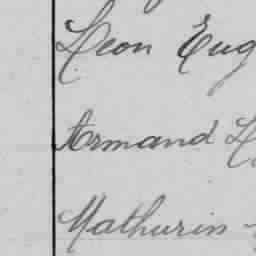 Léon Eug
Armand L
Mathurin